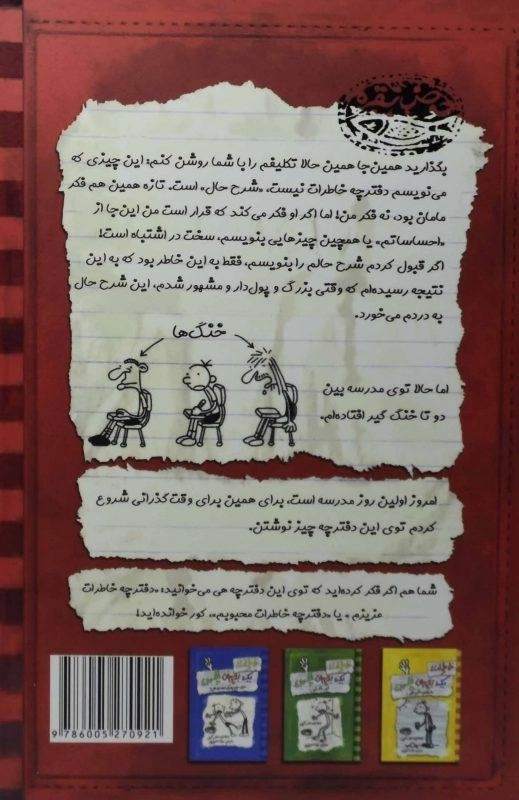 بگذارید همین‌جا همین حالا تکلیفم را با شما روشن کنم؛ این چیزی که
می‌نویسم دفترچه خاطرات نیست، «شرح حال» است. تازه همین هم فکر
مامان بود، نه فکر من! اما اگر او فکر می‌کند که قرار است من این‌جا از
«احساساتم» یا همچین چیزهایی بنویسم، سخت در اشتباه است!
اگر قبول کردم شرح حالم را بنویسم، فقط به این خاطر بود که به این
نتیجه رسیده‌ام که وقتی بزرگ و پول‌دار و مشهور شدم، این شرح حال
به دردم می‌خورد.
خنگ‌ها
اما حالا توی مدرسه بین
دو تا خنگ گیر افتاده‌ام.
امروز اولین روز مدرسه است، برای همین برای وقت‌گذرانی شروع
کردم توی این دفترچه چیز نوشتن.
شما هم اگر فکر کرده‌اید که توی این دفترچه هی می‌خوانید: «دفترچه خاطرات
عزیزم» یا «دفترچه خاطرات محبوبم»، کور خوانده‌اید!
9 786005 270921